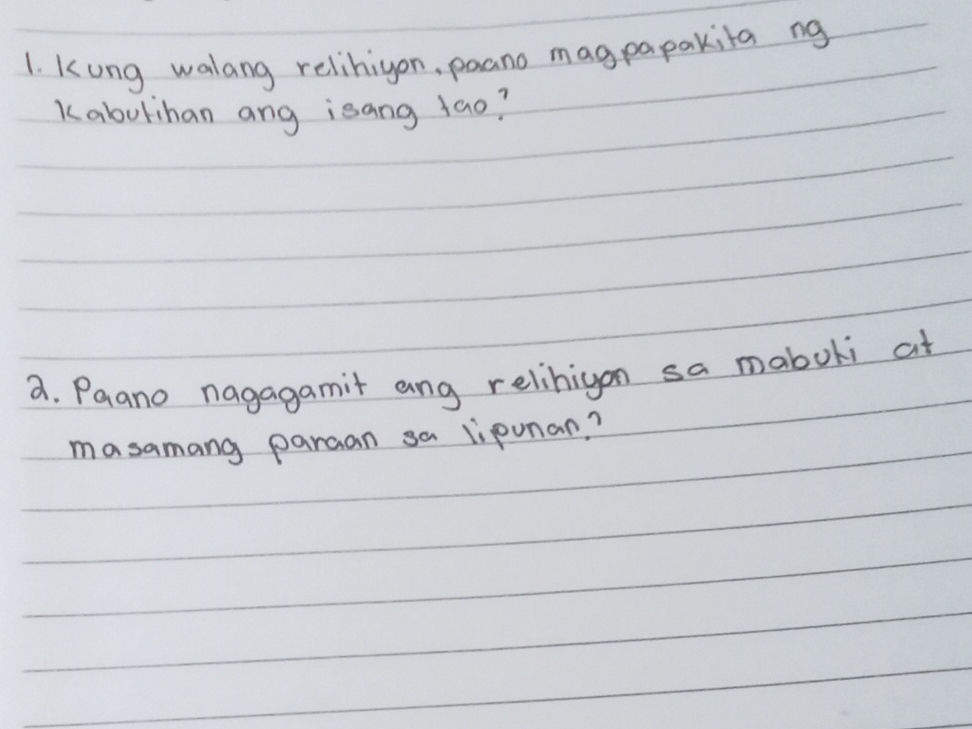 1. Kung walang relihiyon, paano magpapakita ng
Kabutihan ang isang tao?
2. Paano nagagamit ang relihiyon sa mabuti at
masamang paraan sa lipunan?